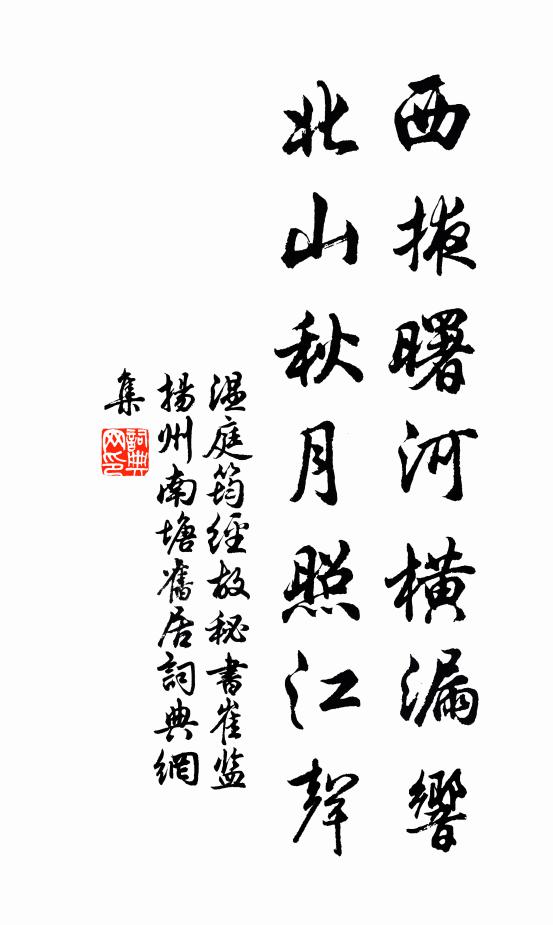 西掖曙河橫漏響
北山秋月照江聲
溫庭筠經故秘書崔監
揚州南塘舊居詞典網
集
詞典
网印